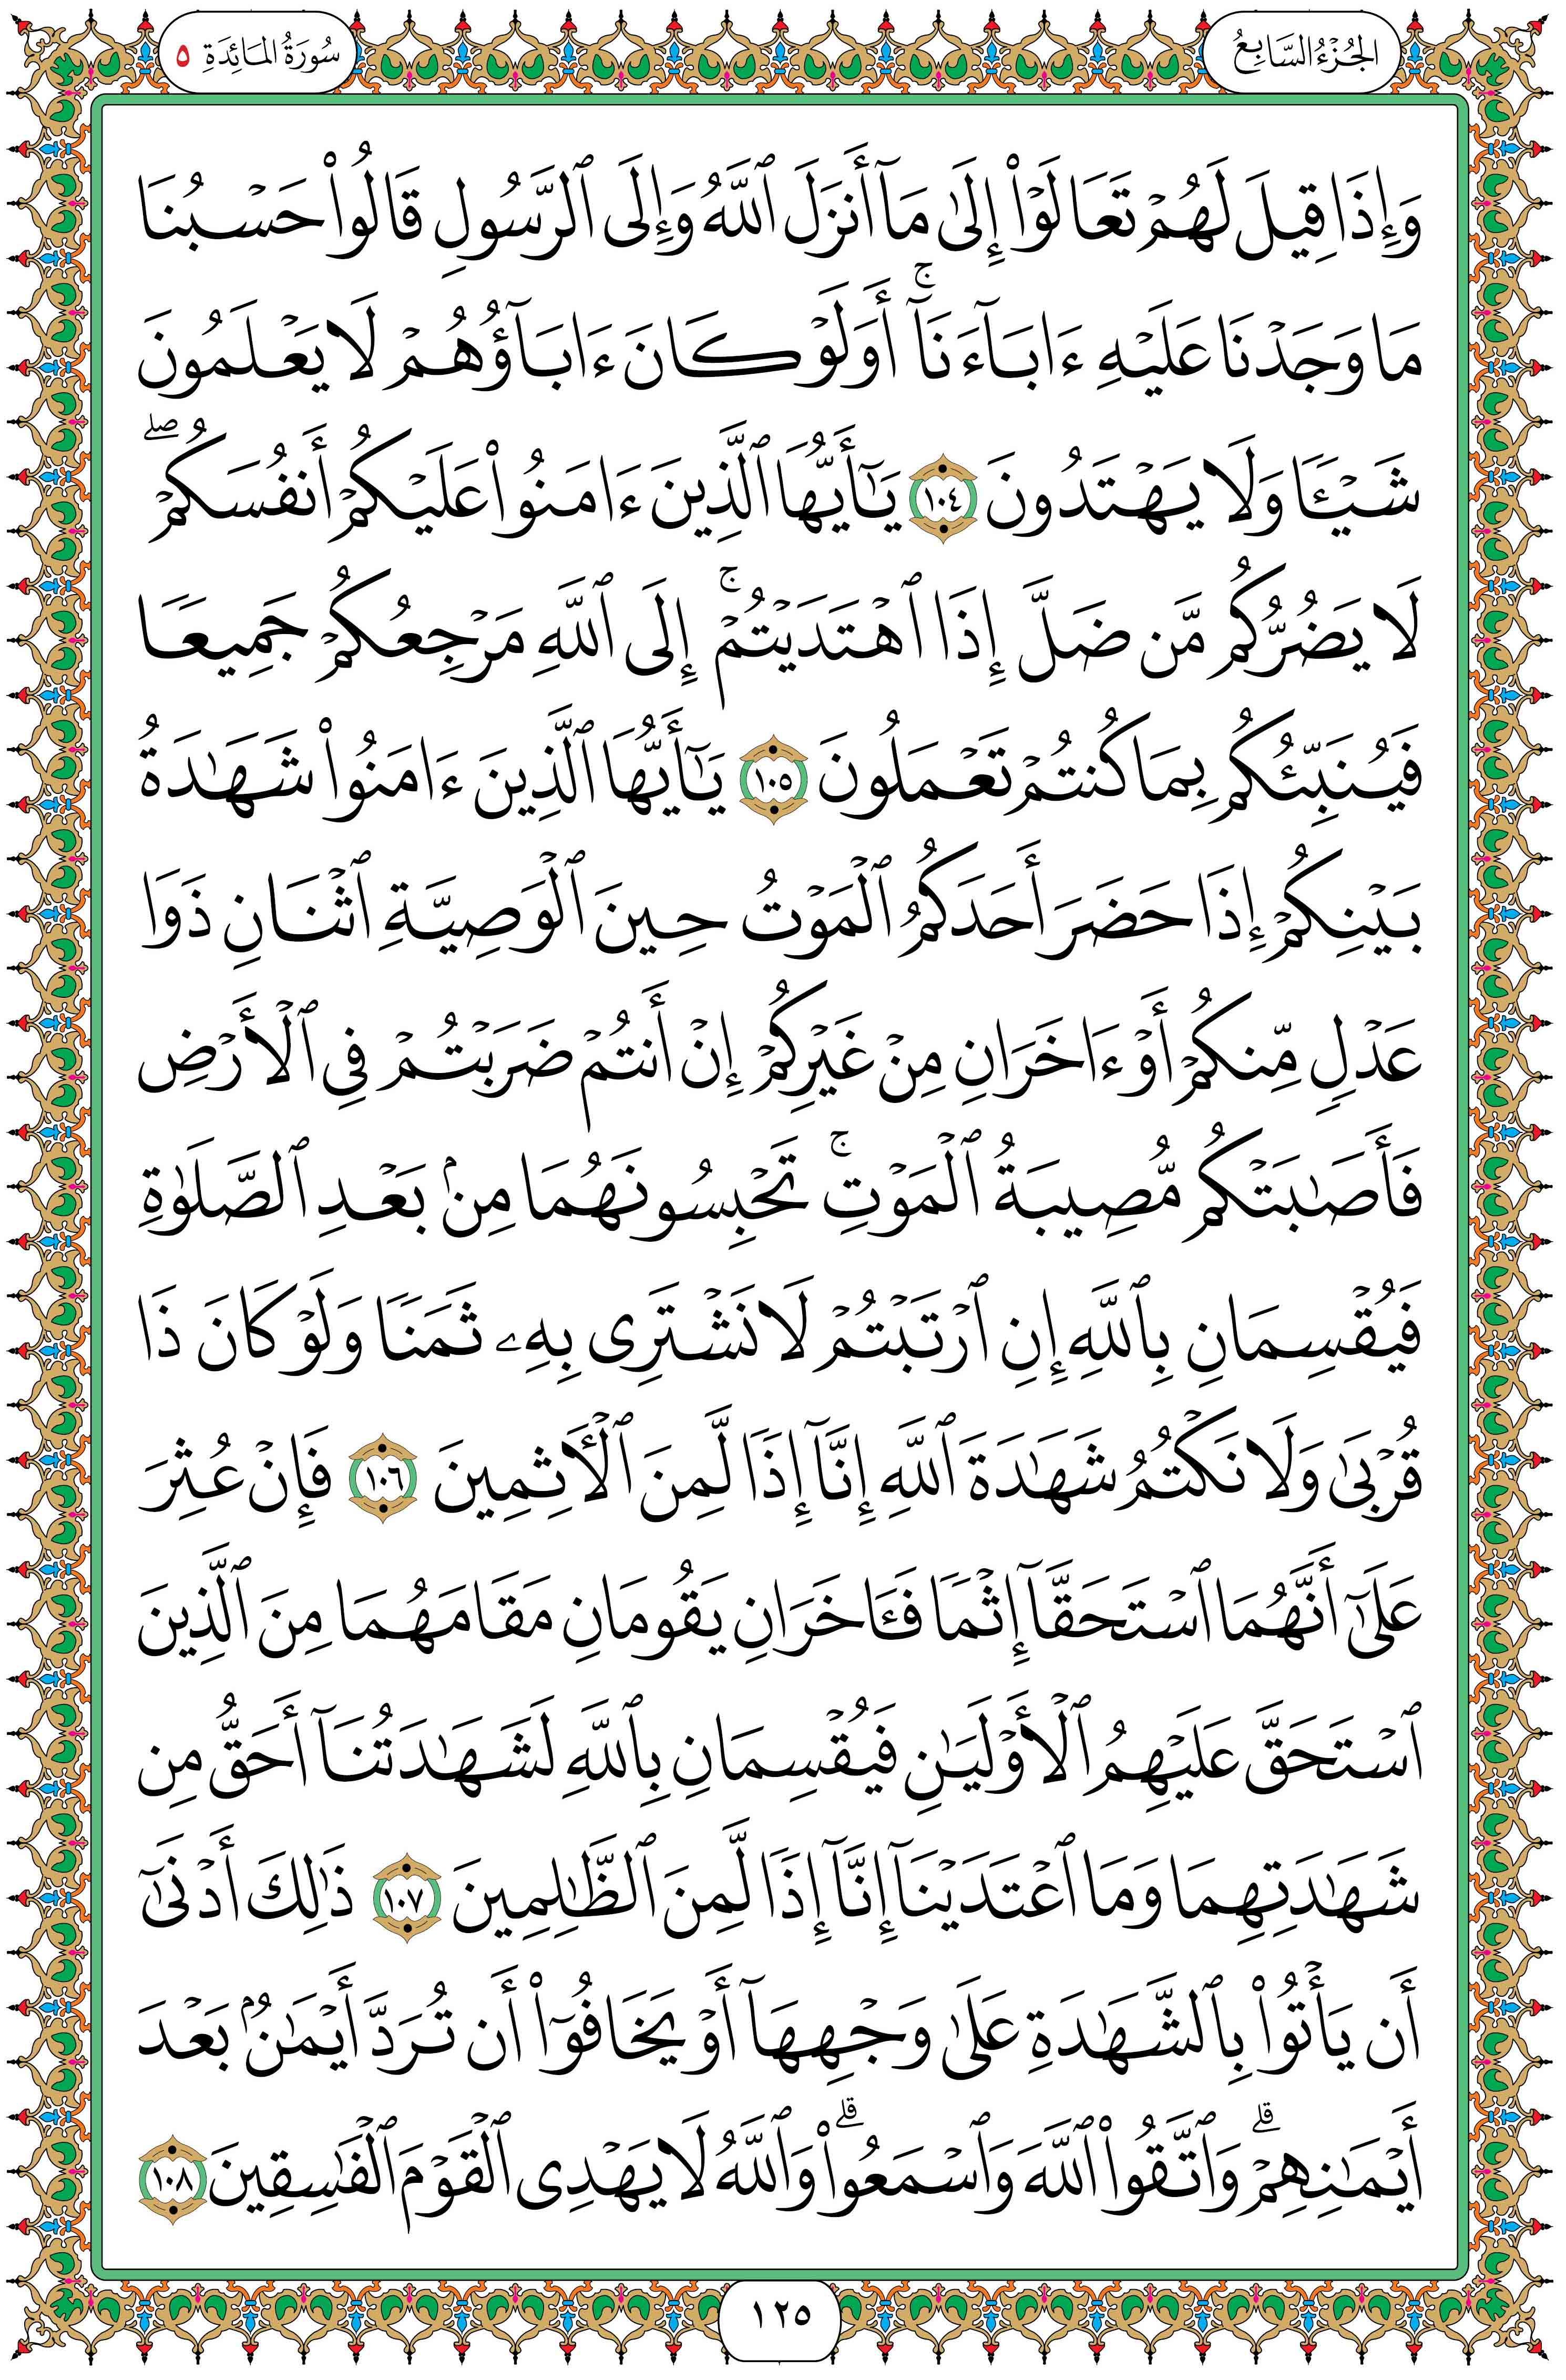 الجُزْءُ السَّابِعُ
سُورَةُ المَائِدَةِ ٥
وَإِذَا قِيلَ لَهُمۡ تَعَالَوۡاْ إِلَىٰ مَآ أَنزَلَ ٱللَّهُ وَإِلَى ٱلرَّسُولِ قَالُواْ حَسۡبُنَا
مَا وَجَدۡنَا عَلَيۡهِ ءَابَآءَنَآۚ أَوَلَوۡ كَانَ ءَابَآؤُهُمۡ لَا يَعۡلَمُونَ
شَيۡـٔٗا وَلَا يَهۡتَدُونَ ١٠٤ يَـٰٓأَيُّهَا ٱلَّذِينَ ءَامَنُواْ عَلَيۡكُمۡ أَنفُسَكُمۡۖ
لَا يَضُرُّكُم مَّن ضَلَّ إِذَا ٱهۡتَدَيۡتُمۡۚ إِلَى ٱللَّهِ مَرۡجِعُكُمۡ جَمِيعٗا
فَيُنَبِّئُكُم بِمَا كُنتُمۡ تَعۡمَلُونَ ١٠٥ يَـٰٓأَيُّهَا ٱلَّذِينَ ءَامَنُواْ شَهَٰدَةُ
بَيۡنِكُمۡ إِذَا حَضَرَ أَحَدَكُمُ ٱلۡمَوۡتُ حِينَ ٱلۡوَصِيَّةِ ٱثۡنَانِ ذَوَا
عَدۡلٖ مِّنكُمۡ أَوۡ ءَاخَرَانِ مِنۡ غَيۡرِكُمۡ إِنۡ أَنتُمۡ ضَرَبۡتُمۡ فِي ٱلۡأَرۡضِ
فَأَصَٰبَتۡكُم مُّصِيبَةُ ٱلۡمَوۡتِۚ تَحۡبِسُونَهُمَا مِنۢ بَعۡدِ ٱلصَّلَوٰةِ
فَيُقۡسِمَانِ بِٱللَّهِ إِنِ ٱرۡتَبۡتُمۡ لَا نَشۡتَرِي بِهِۦ ثَمَنٗا وَلَوۡ كَانَ ذَا
قُرۡبَىٰ وَلَا نَكۡتُمُ شَهَٰدَةَ ٱللَّهِ إِنَّآ إِذٗا لَّمِنَ ٱلۡأٓثِمِينَ ١٠٦ فَإِنۡ عُثِرَ
عَلَىٰٓ أَنَّهُمَا ٱسۡتَحَقَّآ إِثۡمٗا فَـَٔاخَرَانِ يَقُومَانِ مَقَامَهُمَا مِنَ ٱلَّذِينَ
ٱسۡتَحَقَّ عَلَيۡهِمُ ٱلۡأَوۡلَيَٰنِ فَيُقۡسِمَانِ بِٱللَّهِ لَشَهَٰدَتُنَآ أَحَقُّ مِن
شَهَٰدَتِهِمَا وَمَا ٱعۡتَدَيۡنَآ إِنَّآ إِذٗا لَّمِنَ ٱلظَّـٰلِمِينَ ١٠٧ ذَٰلِكَ أَدۡنَىٰٓ
أَن يَأۡتُواْ بِٱلشَّهَٰدَةِ عَلَىٰ وَجۡهِهَآ أَوۡ يَخَافُوٓاْ أَن تُرَدَّ أَيۡمَٰنُۢ بَعۡدَ
أَيۡمَٰنِهِمۡۗ وَٱتَّقُواْ ٱللَّهَ وَٱسۡمَعُواْۗ وَٱللَّهُ لَا يَهۡدِي ٱلۡقَوۡمَ ٱلۡفَٰسِقِينَ ١٠٨
١٢٥